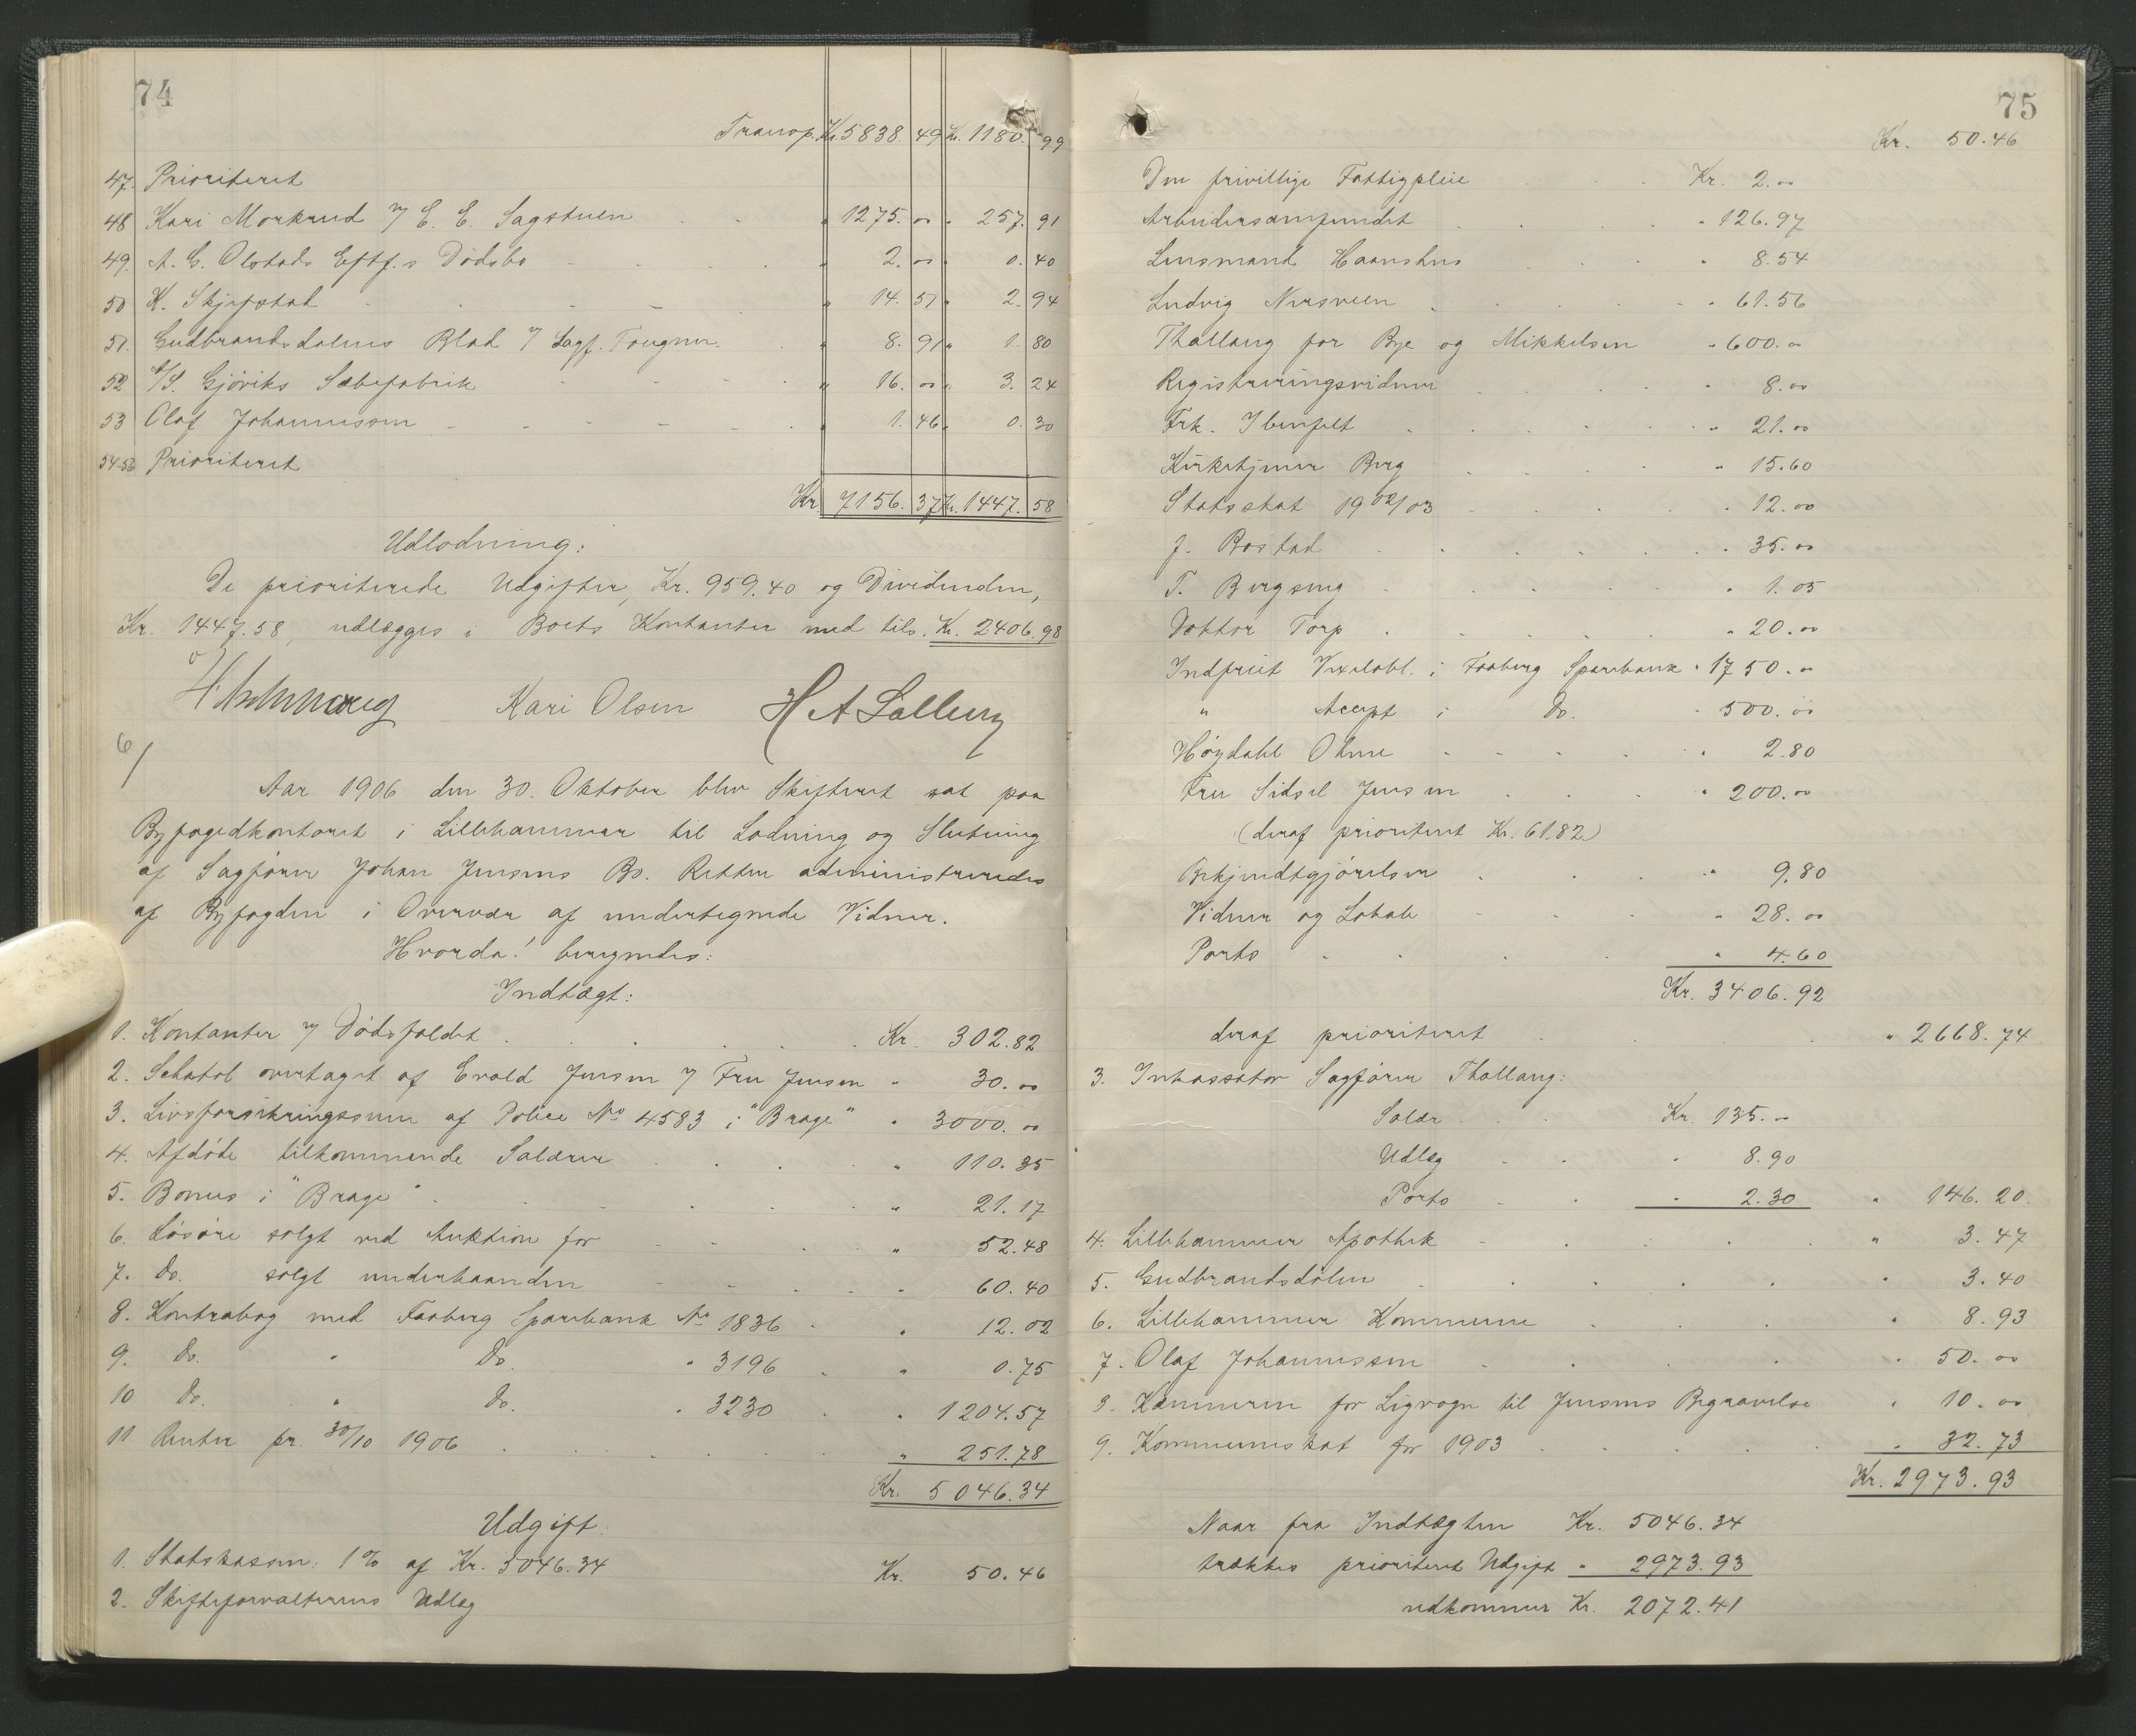 74
Transp. Kr. 5838. 49 Kr. 1180. 99
47. Prioriteret
48 Kari Morkrud v/ E. E. Sagstuen " 1275. 00 " 257. 91
49. A. G. Olstads Eftf.s Dødsbo " 2. 00 " 0. 40
50 K. Skjefstad " 14. 51 " 2. 94
51. Gudbrandsdølens Blad v/ Sagf. Fougner. " 8. 91 " 1. 80
52 A/S. Gjøviks Sæbefabrik " 16. 00 " 3. 24
53 Olaf Johannessen " 1. 46 " 0. 30
54-56 Prioriteret
Kr. 7156. 37 Kr. 1447. 58
Udlodning:
De prioriterede Udgifter, Kr. 959.40 og Dividenden,
Kr. 1447.58, udlægges i Boets Kontanter med tils. Kr. 2406.98
Kari Olsen H A Lølleng
6/
Aar 1906 den 30. Oktober blev Skifteret sat paa
Byfogedkontoret i Lillehammer til Lodning og Slutning
af Sagfører Johan Jensens Bo. Retten administreredes
af Byfogden i Overvær af undertegnede Vidner.
Hvorda! beregnedes:
Indtægt:
1. Kontanter v/ Dødsfaldet Kr. 302.82
2. Schatol overtaget af Evald Jensen v/ Fru Jensen " 30. 00
3. Livsforsikringssum af Police No 4583 i "Brage" " 3000. 00
4. Afdøde tilkommende Salærer " 110. 35
5. Bonus i "Brage" " 21. 17
6. Løsøre solgt ved Auktion for " 52.48
7. Do. solgt underhaanden " 60. 40
8. Kontrabog med Faaberg Sparebank No 1836 " 12. 02
9. Do. " Do. " 3196 " 0.75
10 Do. " Do. " 3230 " 1204.57
11 Renter pr. 30/10 1906 " 251.78
Kr. 5046.34
Udgift.
1. Statskassen: 1% af Kr. 5046.34 Kr. 50.46
2. Skifteforvalterens Udlæg
75
Kr. 50.46
Den frivillige Fattigpleie Kr. 2.00
Arbeidersamfundet " 126.97
Lensmand Haanshus " 8.54
Ludvig Nersveen " 61.56
Thallaug for Bye og Mikkelsen " 600.00
Registreringsvidner " 8.00
Frk. Ibenfelt " 21.00
Kirketjener Berg " 15.60
Statsskat 1902/03 " 12.00
J. Bostad " 35.00
T. Bergseng " 1.05
Doktor Torp " 20.00
Indfriet Vexelobl. i Faaberg Sparebank " 1750.00
" Accept i Do. " 500.00
Høydahl Ohme " 2.80
Fru Sidsel Jensen " 200.00
(deraf prioriteret Kr. 61.82)
Bekjendtgjørelser " 9.80
Vidner og Lokale " 28.00
Porto " 4.60
Kr. 3406.92
deraf prioriteret " 2668.74
3. Inkassator Sagfører Thallaug:
Salær Kr. 135.00
Udlæg " 8.90
Porto " 2.30 " 146.20.
4. Lillehammer Apothek " 3.47
5. Gudbrandsdølen " 3.40
6. Lillehammer Kommune " 8.93
7. Olaf Johannessen " 50.00
8. Kæmneren for Ligvogn til Jensens Begravelse " 10.00
9. Kommuneskat for 1903 " 32.73
Kr. 2973.93
Naar fra Indtægten Kr. 5046.34
trækkes prioriteret Udgift " 2973.93
udkommer Kr. 2072.41